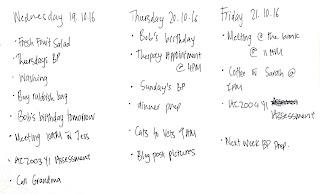 Wednesday 19.10.16
• Fresh Fruit Salad
• Thursdays BP
• Washing
• Buy rubbish bag
• Bob's birthday tomorrow
• Meeting 10AM w Jess
• AC2003 Y1 Assessment
• Call Grandma
Thursday 20.10.16
• Bob's birthday
• Therapy Appointment
@ 4PM
• Sunday's BP
• dinner prep
• Cats to Vets 9AM
• Blog post pictures
Friday 21.10.16
• Meeting @ the bank
@ 11AM
• Coffee w Sarah @
1PM
• AC2004 Y1
Assessment
• Next Week BP Prep.